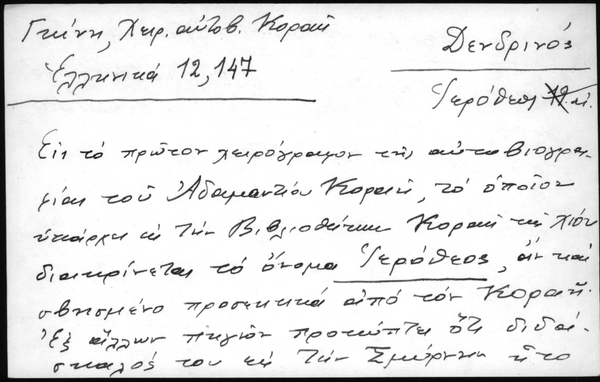 Γκίνη, Χειρ. αὐτοβ. Κοραῆ
Ἑλληνικά 12, 147
Δενδρινός
Ἱερόθεος
Εἰς τό πρῶτον χειρόγραφον τῆς αὐτοβιογρα-
φίας τοῦ Ἀδαμαντίου Κοραῆ, τό ὁποῖον
ὑπάρχει εἰς τήν Βιβλιοθήκην Κοραῆ τῆς Χίου
διακρίνεται τό ὄνομα Ἱερόθεος, ἄν καί
σβησμένο προσεκτικά ἀπό τόν Κοραῆ.
Ἐξ ἄλλων πηγῶν προκύπτει ὅτι διδά-
σκαλός του εἰς τήν Σμύρνην ἦτο